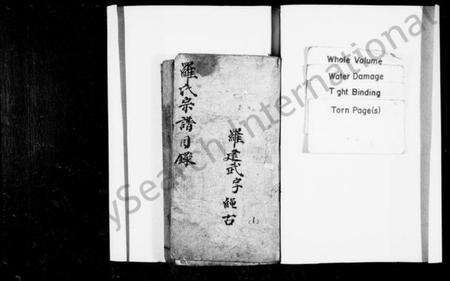 羅氏宗譜目錄
羅建武字繩古
Whole Volume
Water Damage
T ght Binding
Torn Page(s)
ySearch International